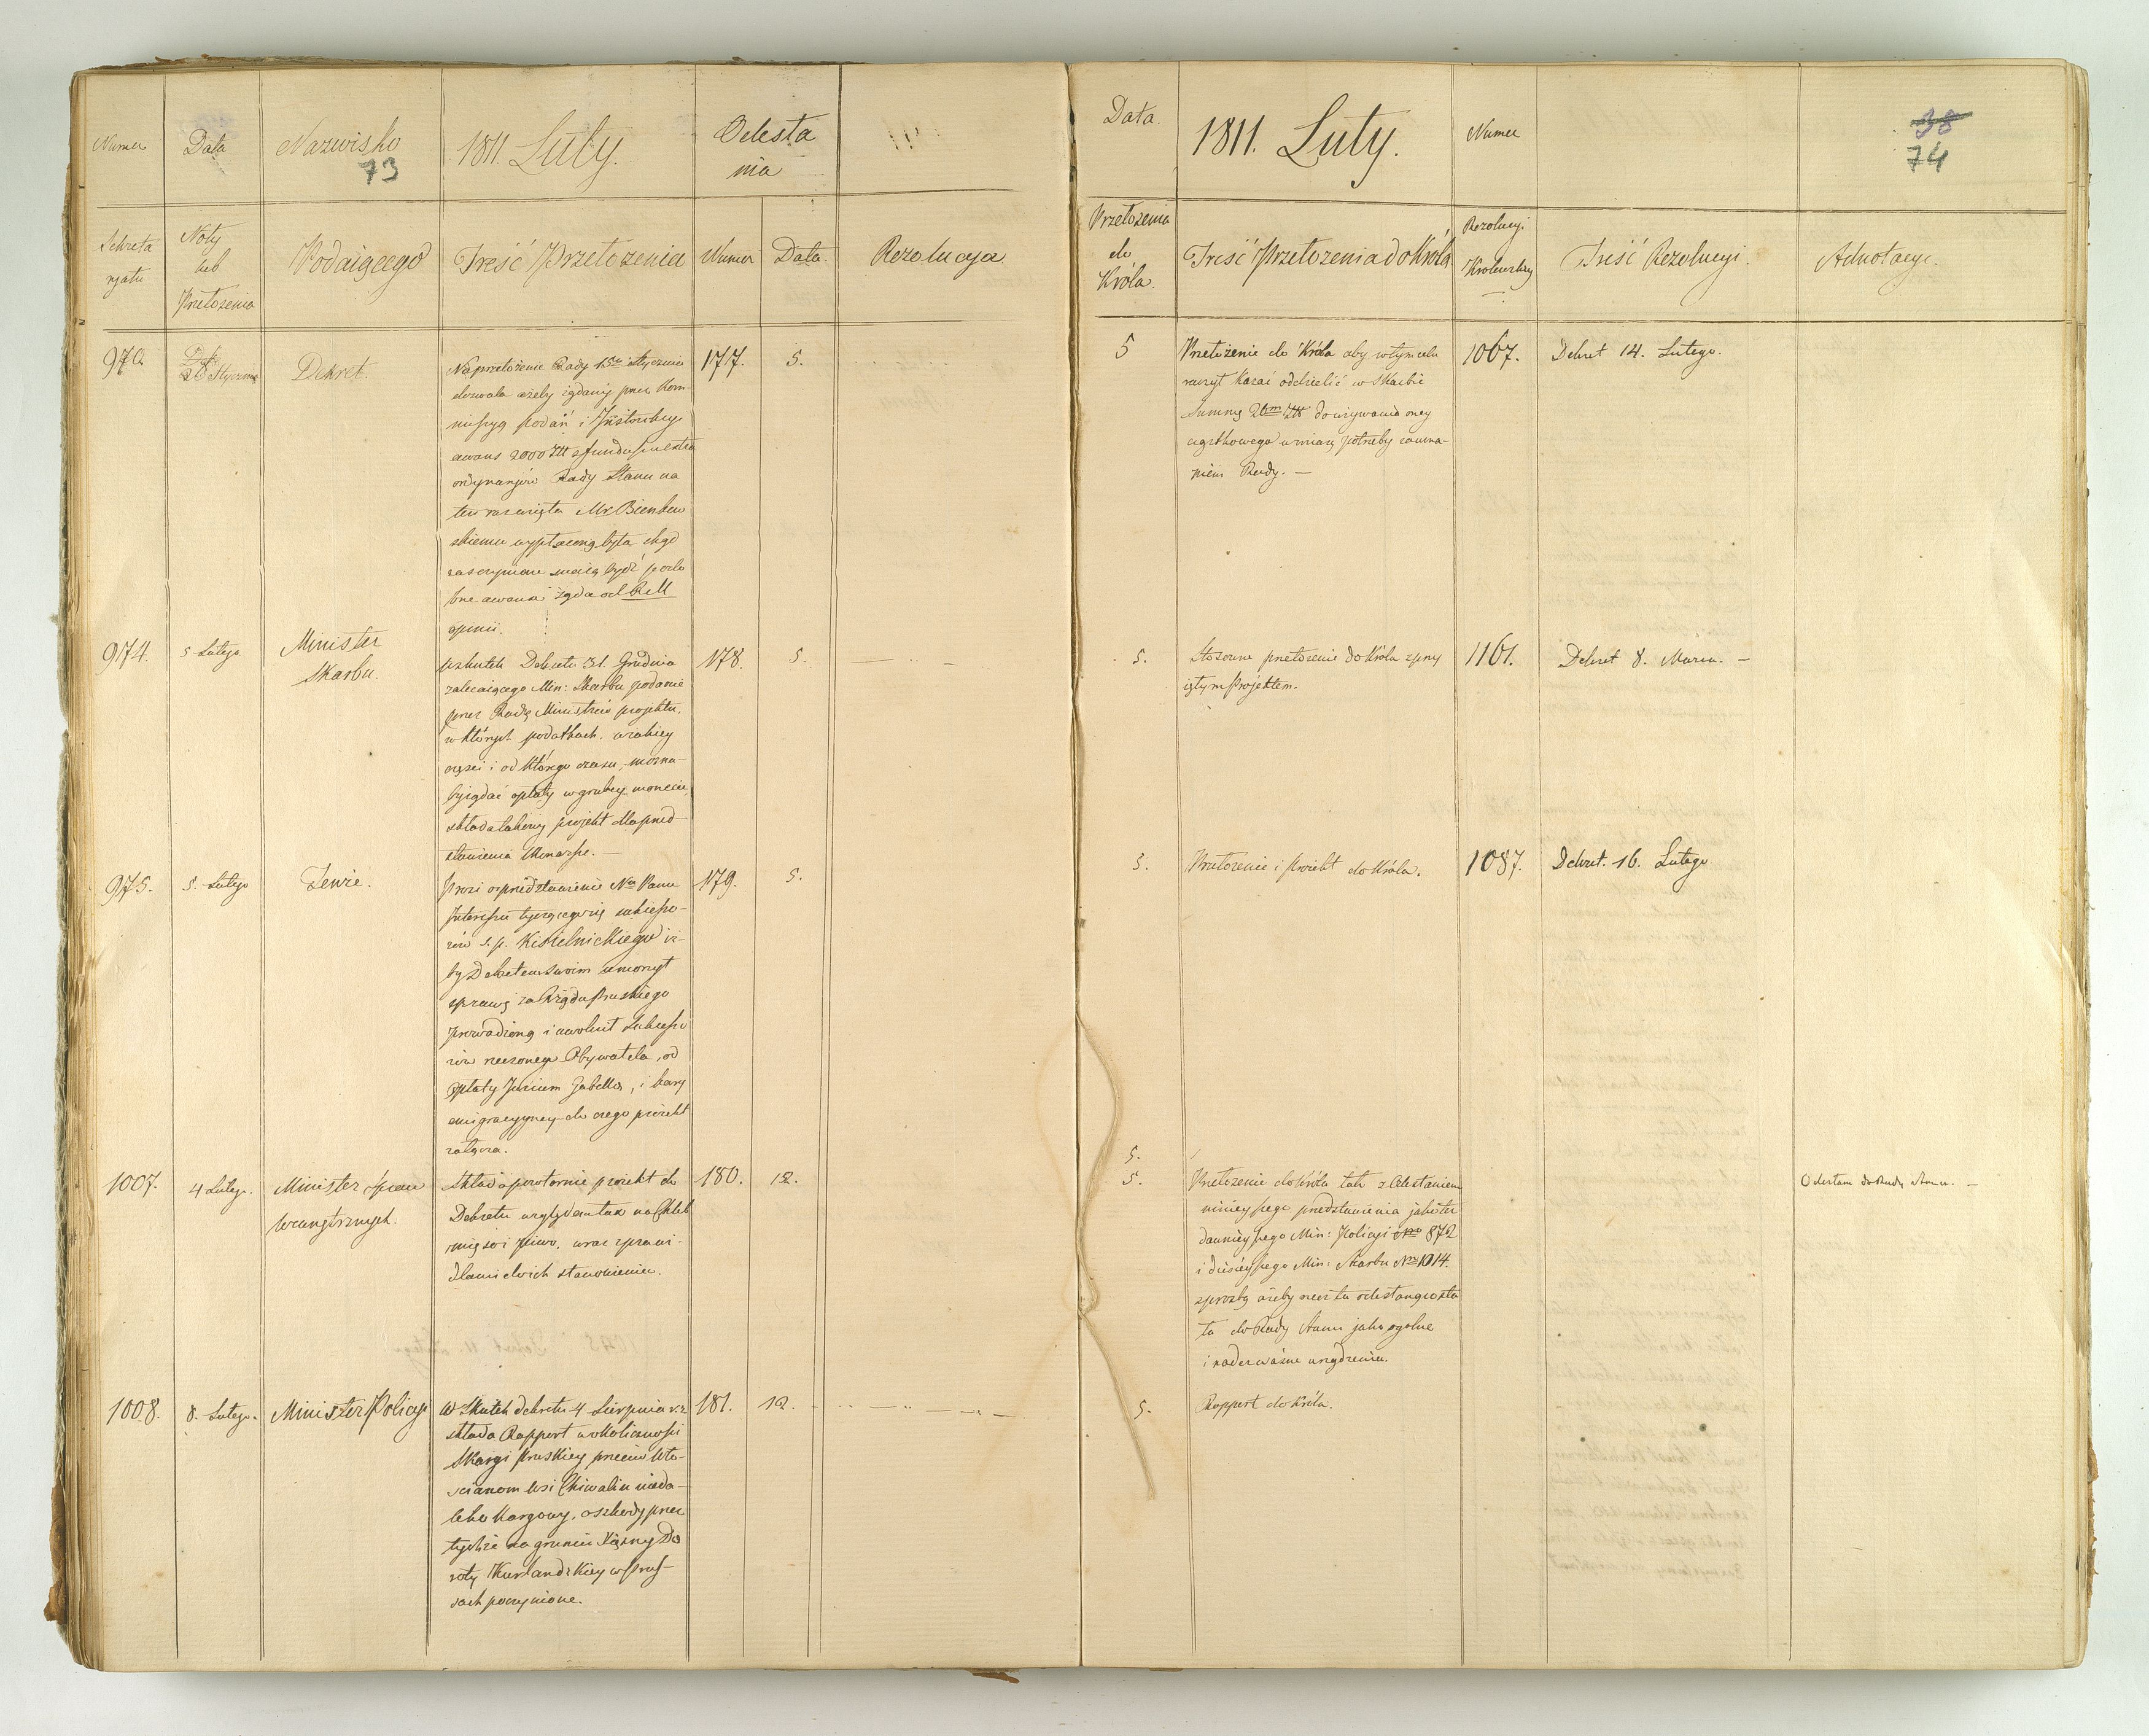 Numer
Data
Nazwisko
73
1811. Luty.
Odesła
nia
Sekreta
ryatu
Noty
lub
Przełożenia
Podaiącego
Treść Przełożenia
Numer
Data.
Rezolucya
970.
28 Stycznia
Dekret.
Na przełożenie Rady 15go Stycznia
dozwala ażeby żądany przez Kom-
missyą podań i Instrukcy
awans 2000 Złł z funduszu extra
ordynaryów Rady Stanu na
ten raz wzięta Mr. Bieńkow
skiemu wypłaconą była skąd
zaś czynione maią bydź podo
bne awanse żąda od R.M
opinii.
177.
5.
974.
5 Lutego
Minister
Skarbu.
W skutek Dekretu 31. Grudnia
zalecaiącego Min: Skarbu podanie
przez Radę Ministrów projektu,
w których podatkach. w iakiey
części i od którego czasu, można-
by żądać opłaty w grubey monecie,
składa takowy projekt dla przed-
stawienia Monarsze. —
178.
5.
975.
5. Lutego
Tenże.
Prosi o przedstawienie Nu Panu
Interessu tyczącego się sukcesso-
rów ś.p. Kisielnickiego iż-
by Dekretem swoim umorzył
sprawę za Rządu Pruskiego
prowadzoną i uwolnił Sukcesso
rów rzeczonego Obywatela, od
opłaty Jurium Gabella, i kary
emigracyyney do czego proiekt
załącza.
179.
5.
1007.
4 Lutego.
Minister Spraw
Wewnętrznych.
Składa powtórnie proiekt do
Dekretu względem tax na Chleb
mięso i piwo, wraz z prawi-
dłami do ich stanowienia.
180.
12.
1008.
8. Lutego.
Minister Policyi
W Skutek dekretu 4 Sierpnia r.z
składa Rapport w okoliczności
Skargi Pruskiey przeciw Wło-
ścianom Wsi Chwalim nieda-
leko Kargowy, o szkody przez
tychże na gruncie Xiężny Do
roty Kurlandzkiey w Prus-
sach poczynione.
181.
12.
Data.
1811. Luty.
Numer
38
74
Przełożenia
do
Króla.
Treść Przełożenia do Króla
Rezolucyi
Królewskiey
Treść Rezolucyi.
Adnotacye.
5
Przełożenie do Króla aby w tym celu
raczył kazać oddzielić w Skarbie
Summę 20m Złł do używania oney
cząstkowego w miarę potrzeby za uzna-
niem Rady. —
1067.
Dekret 14. Lutego.
5.
Stosowne przełożenie do Króla z przy
iętym Projektem.
1161.
Dekret 8. Marca. —
5.
Przełożenie i proiekt do Króla.
1087.
Dekret. 16. Lutego
5.
5.
Przełożenie do Króla tak z Odesłaniem
ninieyszego przedstawienia jako też
dawnieyszego Min: Policyi Nro 872
i dzisieyszego Min: Skarbu Nro 1014.
z prośbą ażeby rzecz ta odesłaną zosta
ła do Rady Stanu jako ogólne
i nader ważne urządzenie.
Odesłano do Rady Stanu. —
5.
Rapport do Króla.